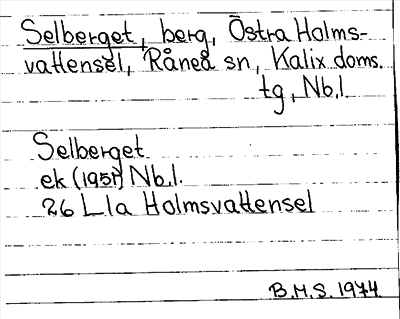 Selberget, berg, Östra Holms-
vattensel, Råneå sn, Kalix doms.
tg, Nb.l.
Selberget
ek (1951) Nb.l.
26 Lla Holmsvattensel
B.M.S. 1974